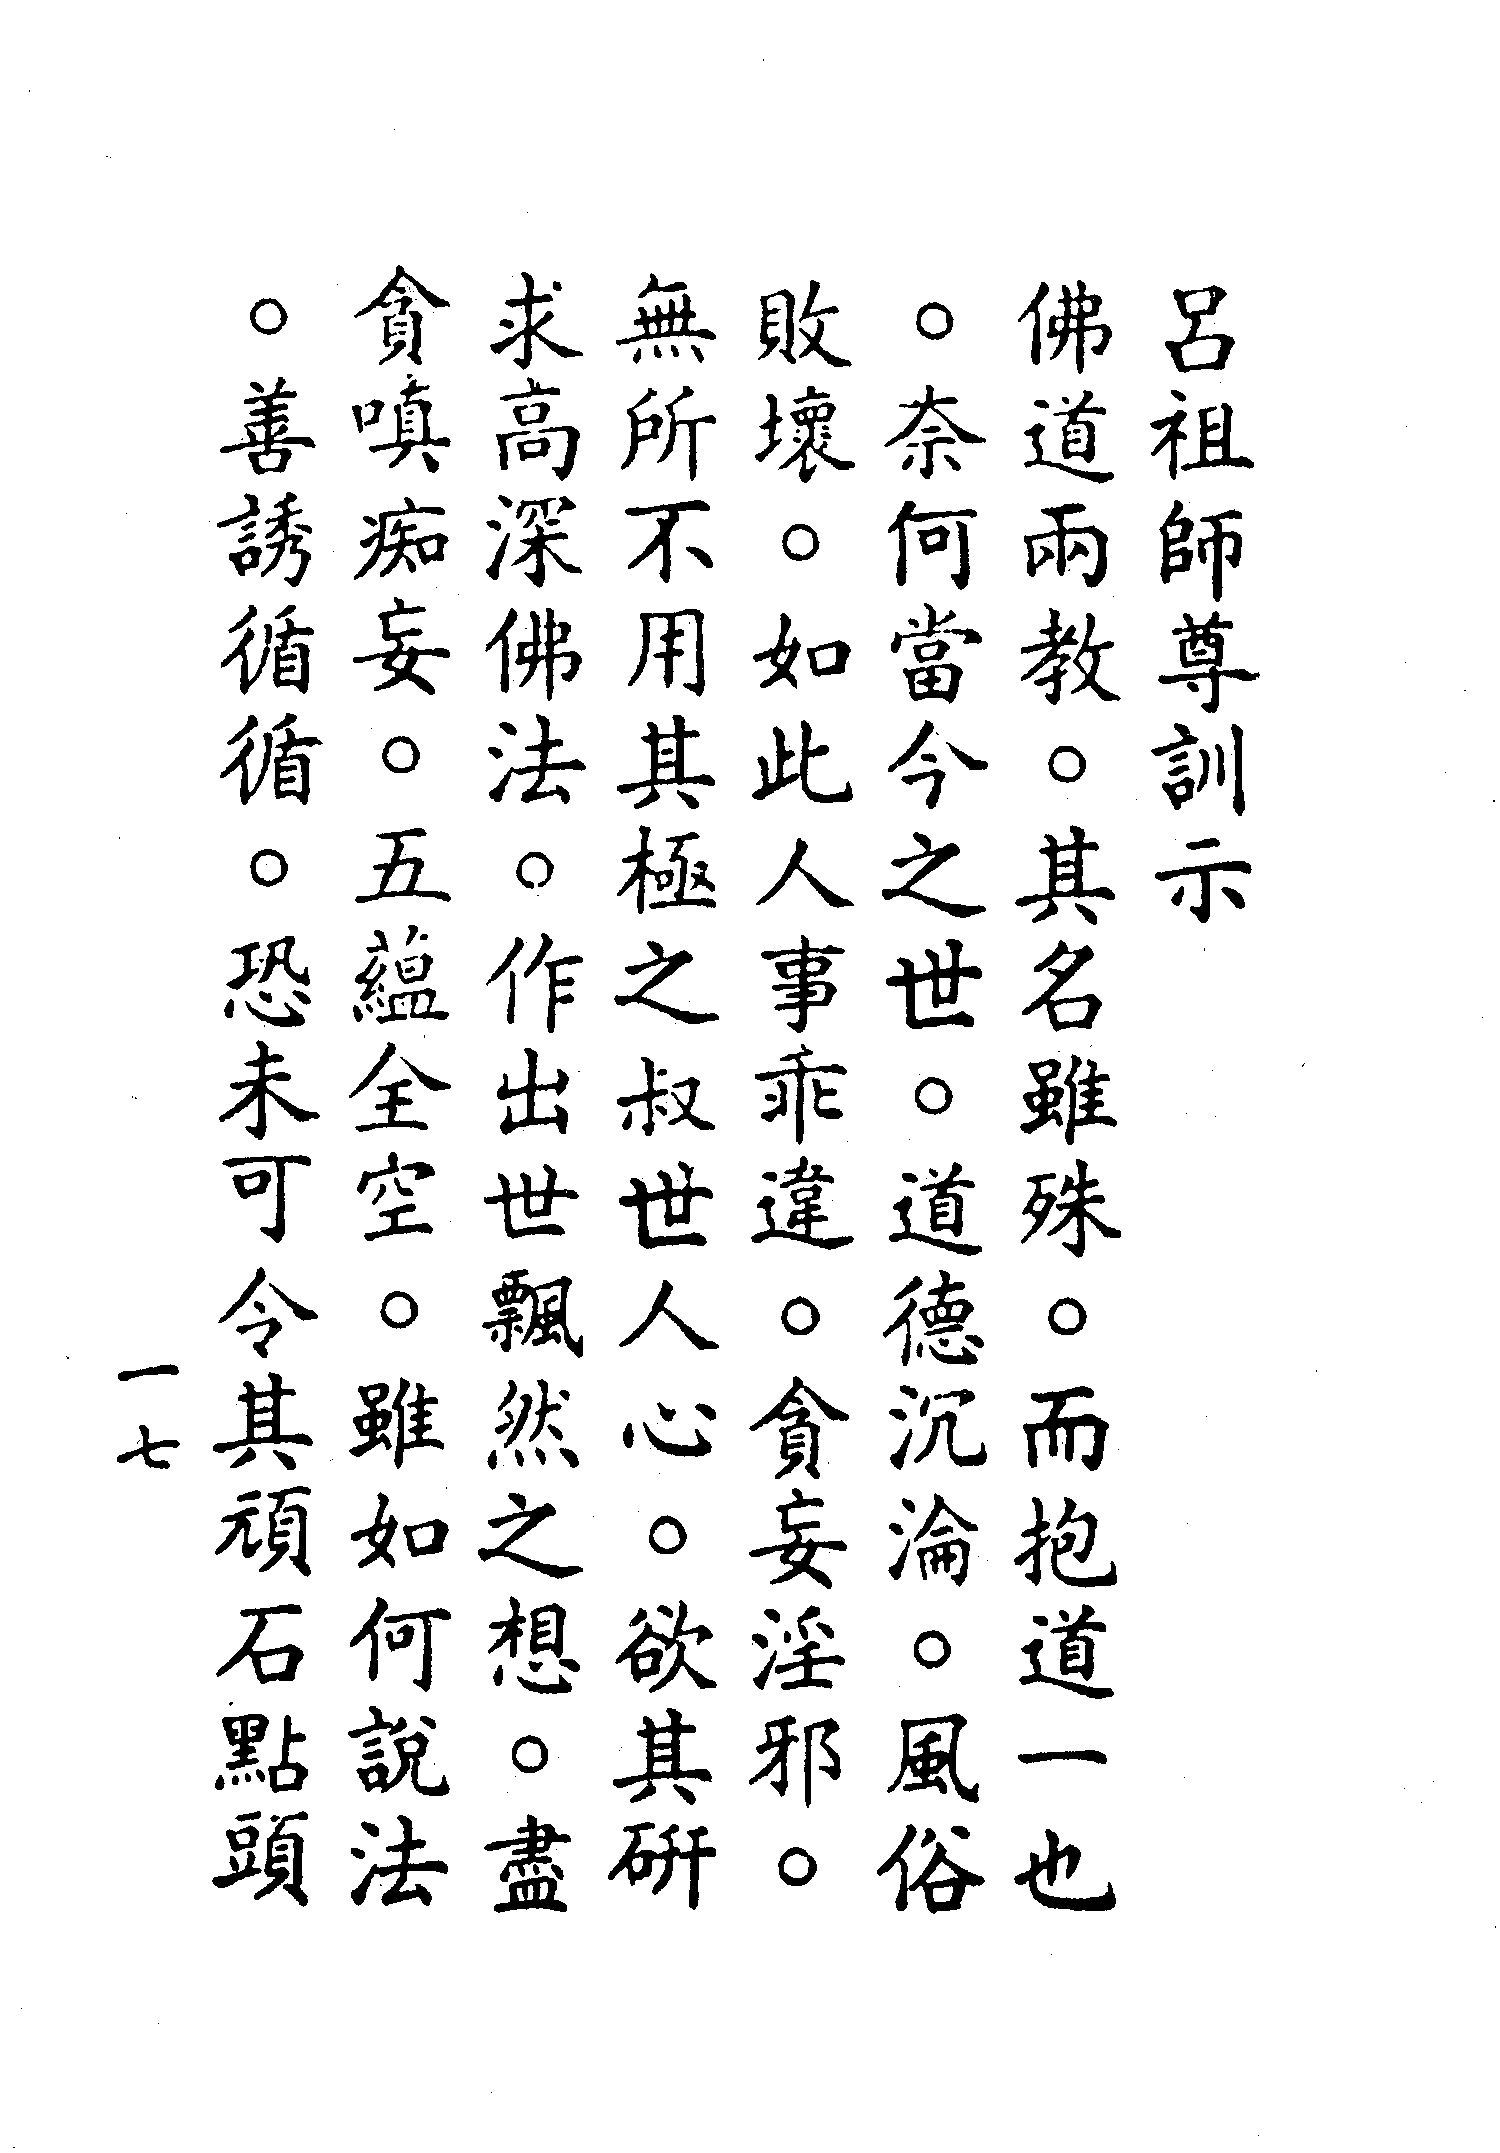 呂祖師尊訓示
佛道兩教。其名雖殊。而抱道一也
。奈何當今之世。道德沉淪。風俗
敗壞。如此人事乖違。貪妄淫邪。
無所不用其極之叔世人心。欲其研
求高深佛法。作出世飄然之想。盡
貪嗔痴妄。五蘊全空。雖如何說法
。善誘循循。恐未可令其頑石點頭
一七